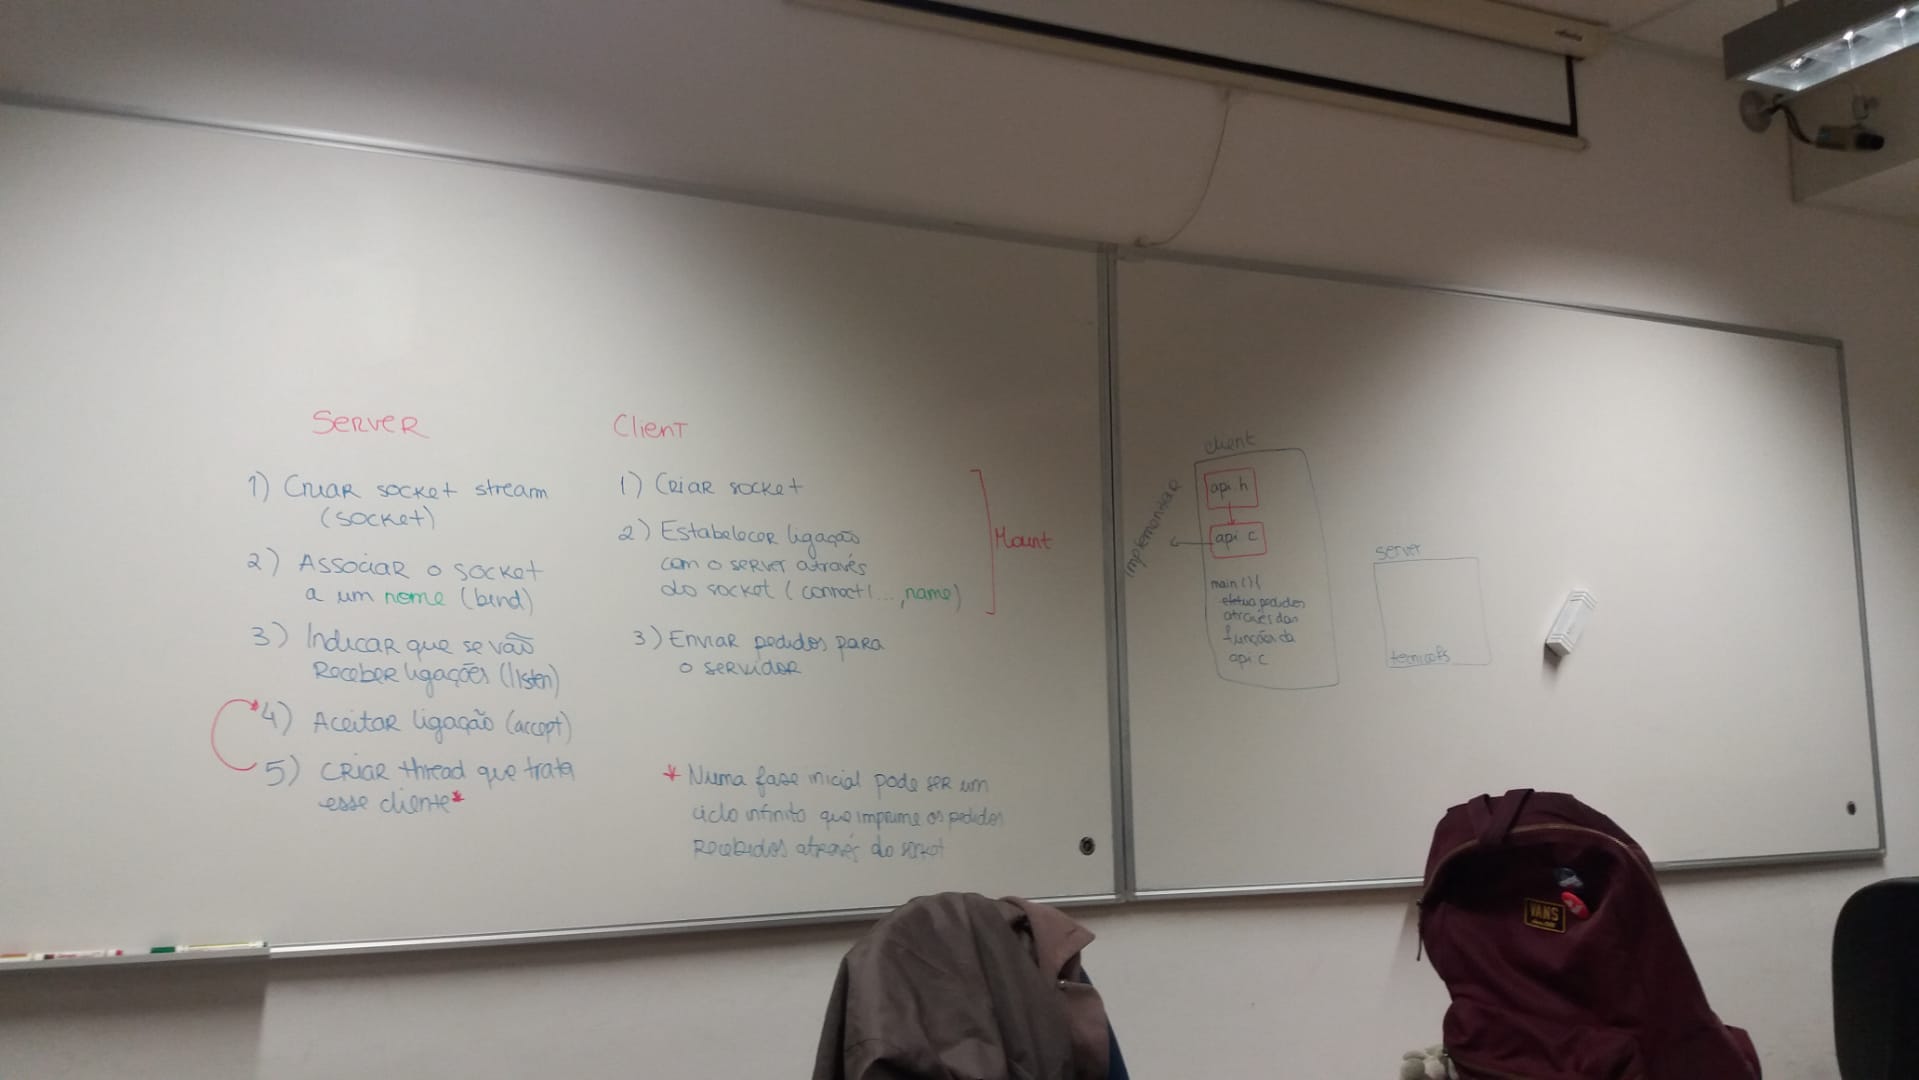 Server
1) Criar socket stream
(socket)
2) Associar o socket
a um nome (bind)
3) Indicar que se vão
receber ligações (listen)
4) Aceitar ligação (accept)
5) Criar thread que trata
esse cliente*
Client
1) Criar socket
2) Estabelecer ligação
com o server através
do socket (connect(...,name)
3) Enviar pedidos para
o servidor
Mount
* Numa fase inicial pode ser um
ciclo infinito que imprime os pedidos
recebidos através do socket
client
api.h
api.c
implementar
main(){
efetua pedidos
através das
funções da
api c
server
tecnicofs
VANS